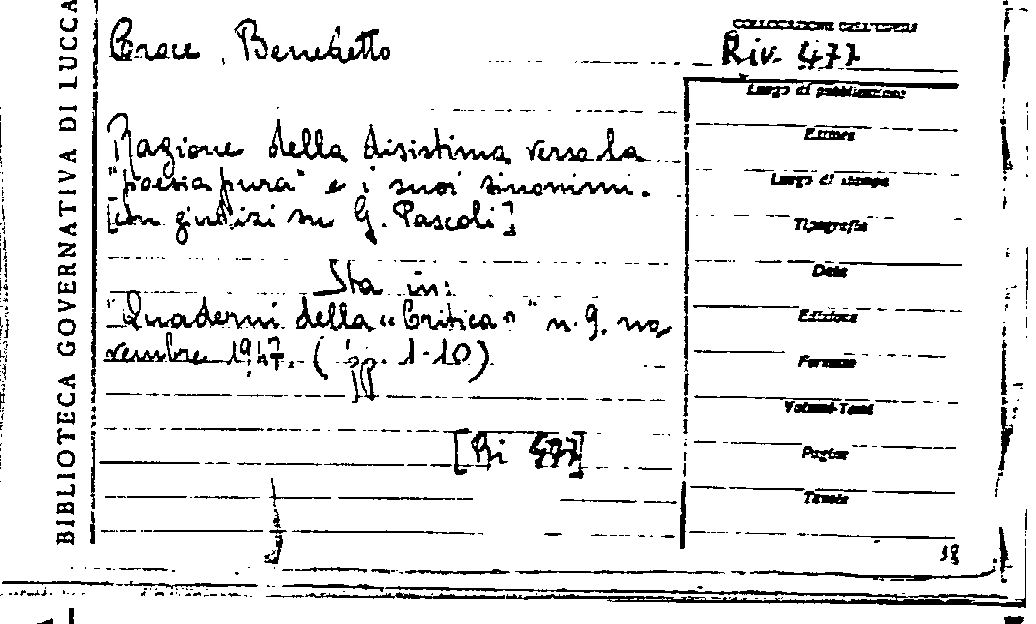 BIBLIOTECA GOVERNATIVA DI LUCCA
Croce, Benedetto
COLLOCAZIONE DELL'OPERA
Riv. 477
Ragione della disistima verso la
"poesia pura" e i suoi sinonimi.
[Con giudizi su G. Pascoli]
Sta in:
"Quaderni della «Critica»" n. 9. no
vembre 1947. (pp. 1-10)
[Ri 477]
Luogo di pubblicazione
Editore
Luogo di stampa
Tipografia
Data
Edizione
Formato
Volumi-Tomi
Pagine
Tavole